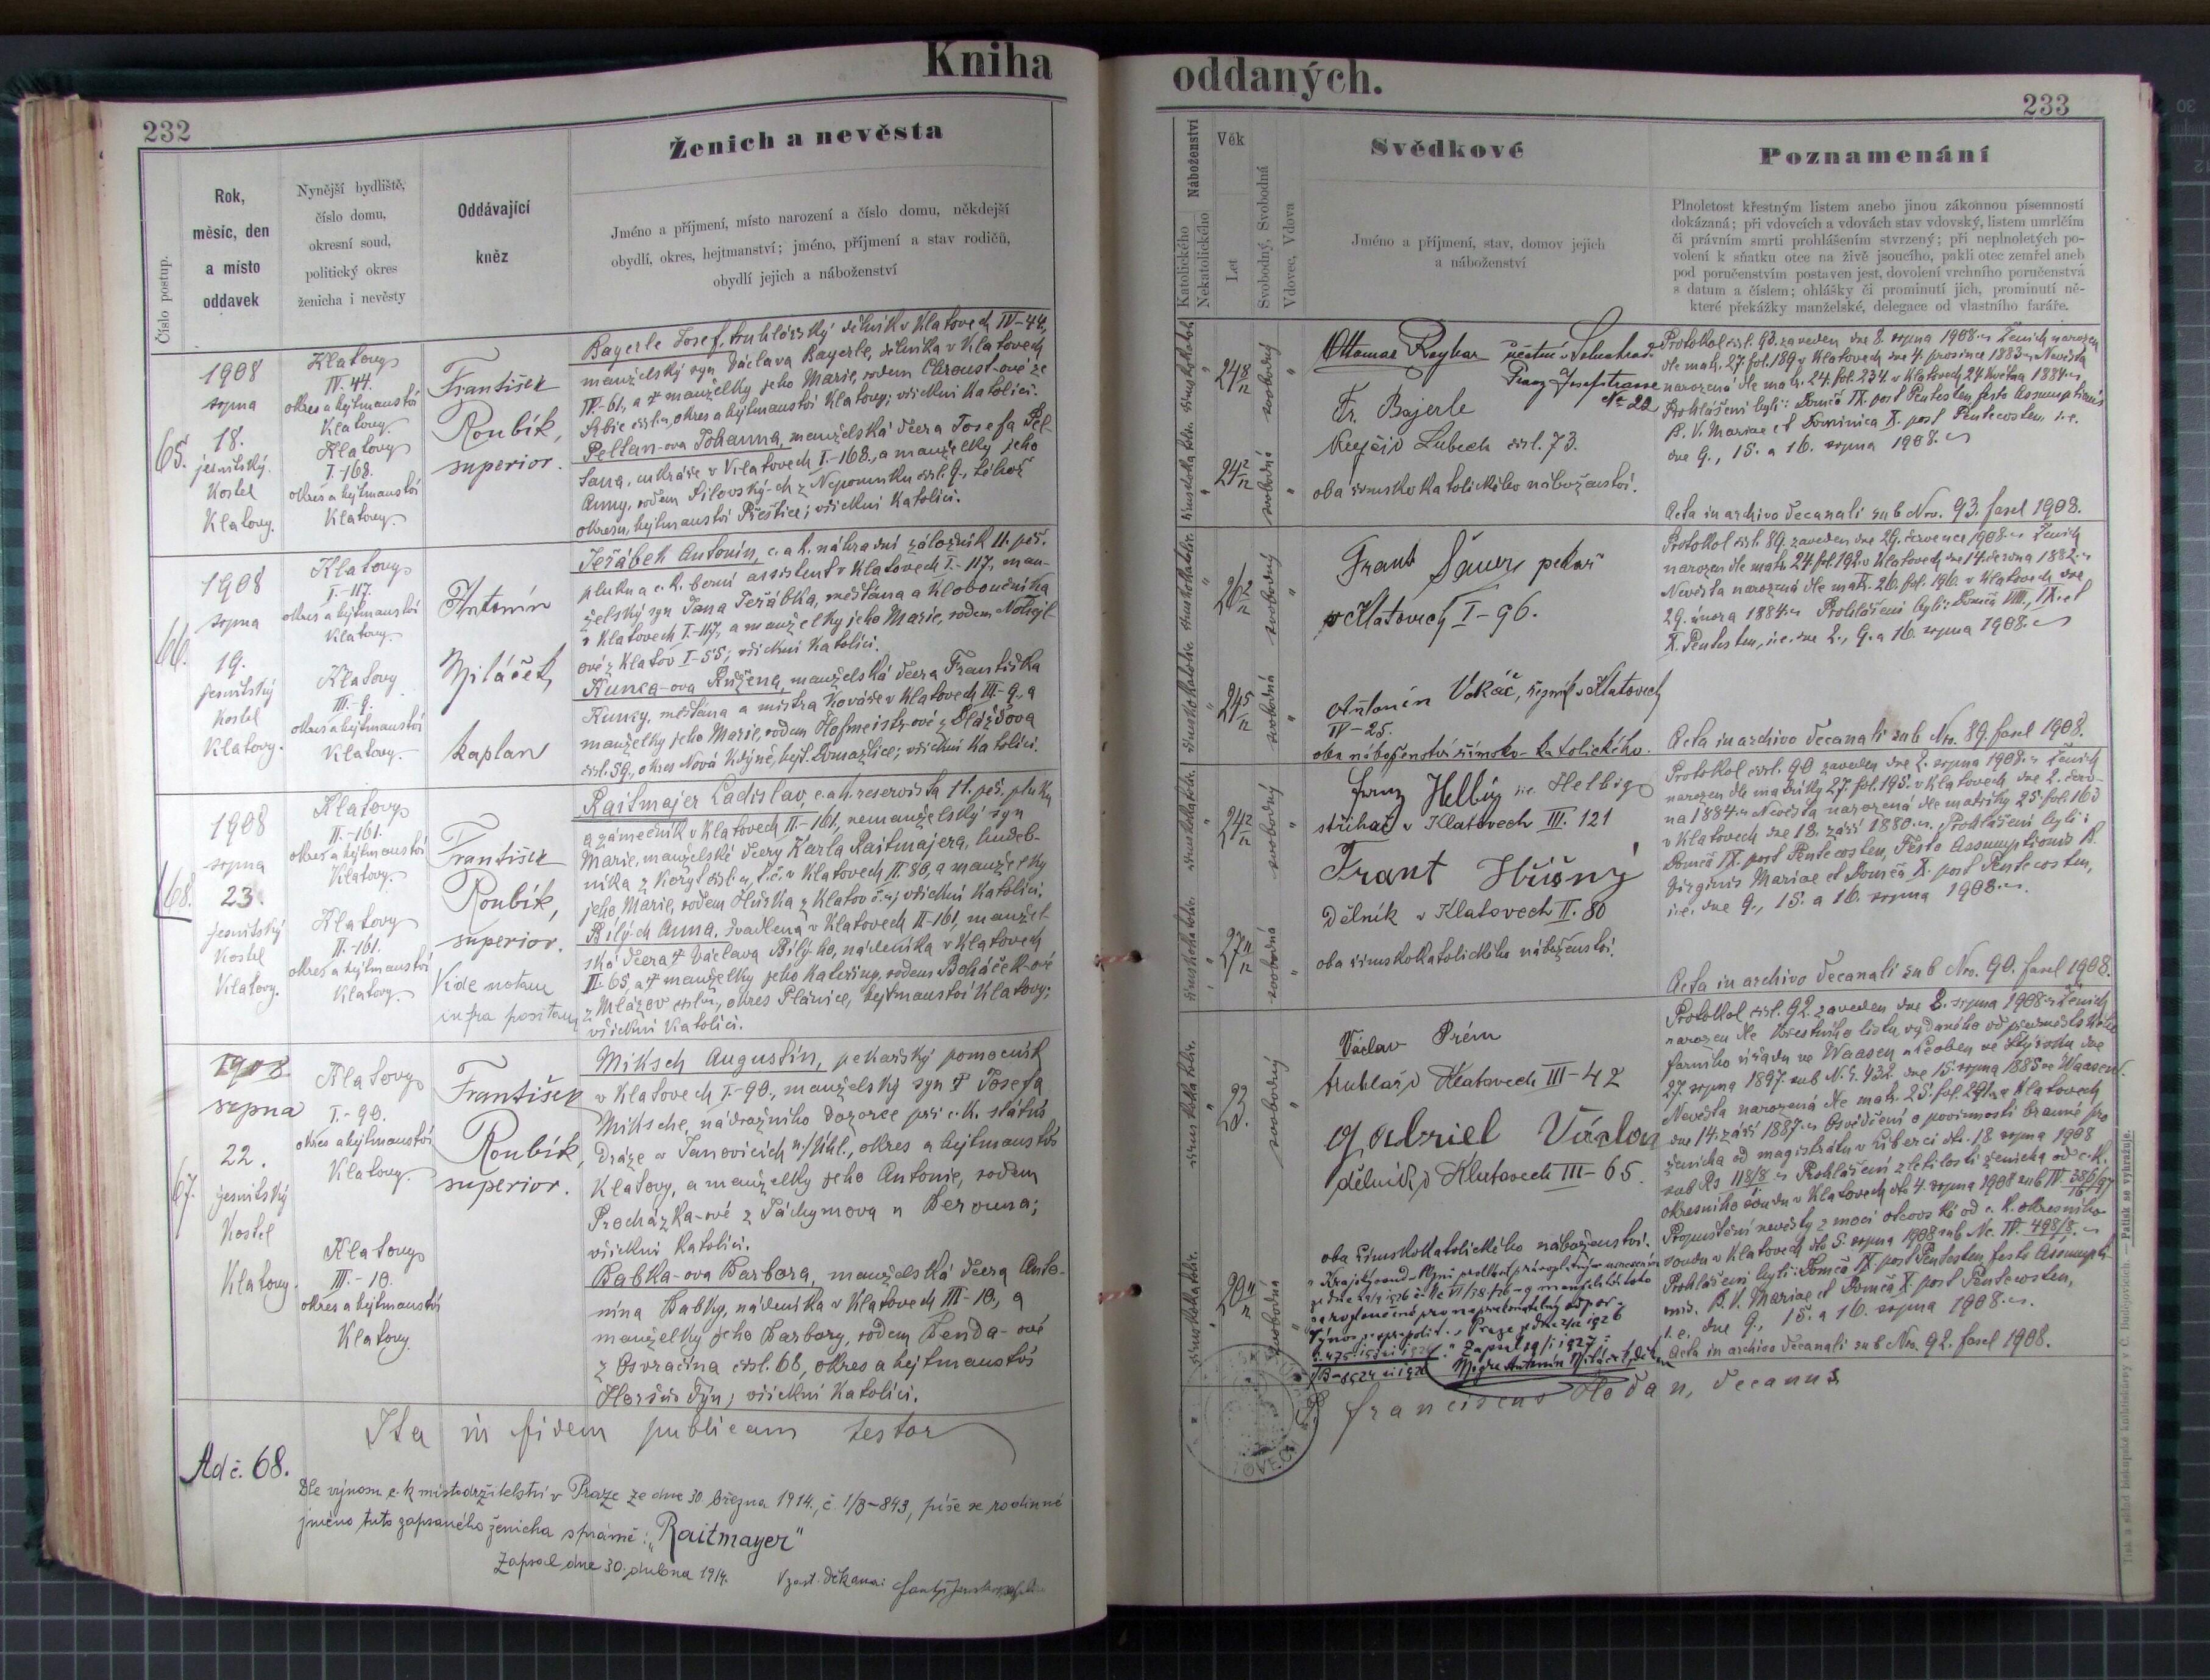 Kniha
oddaných.
232
Číslo postup.
Rok,
měsíc, den
a místo
oddavek
Nynější bydliště,
číslo domu,
okresní soud,
politický okres
ženicha i nevěsty
Oddávající
kněz
Ženich a nevěsta
Jméno a příjmení, místo narození a číslo domu, někdejší
obydlí, okres, hejtmanství; jméno, příjmení a stav rodičů,
obydlí jejich a náboženství
65.
1908
srpna
18.
jesuitský
kostel
Klatovy.
Klatovy
IV. 44.
okres a hejtmanství
Klatovy.
Klatovy
I.-168.
okres a hejtmanství
Klatovy.
František
Roubík,
superior.
Bayerle Josef, truhlářský dělník v Klatovech IV-44,
manželský syn Václava Bayerle, dělníka v Klatovech
IV.-61, a † manželky jeho Marie, rodem Chroust-ové ze
okres a hejtmanství Klatovy; všickni katolíci.
Peltan-ova Johanna, manželská dcera Josefa Pel-
tana, cukráře v Klatovech I.-168., a manželky jeho
Anny, rodem Silovský-ch z Nepomuku čísl. 9., téhož
okresu, hejtmanství Přeštice; všickni katolíci.
66.
1908
srpna
19.
jesuitský
kostel
Klatovy.
Klatovy
I.-117.
okres a hejtmanství
Klatovy.
Klatovy
III.-9.
okres a hejtmanství
Klatovy.
Antonín
Miláček,
kaplan
Jeřábek Antonín, c. a k. náhradní záložník 11. pěš.
pluku a c. k. berní assistent v Klatovech I.-117, man-
želský syn Jana Jeřábka, měšťana a kloboučníka
v Klatovech I.-117, a manželky jeho Marie, rodem
ové z Klatov I-55; všickni katolíci.
Kunca-ova Růžena, manželská dcera Františka
Kuncy, měšťana a mistra kováře v Klatovech III.-9., a
manželky jeho Marie, rodem Hofmeistr-ové z
čísl. 59., okres Nová Kdyně, hejt. Domažlice; všickni katolíci.
68.
1908
srpna
23.
jesuitský
kostel
Klatovy.
Klatovy
II.-161.
okres a hejtmanství
Klatovy.
Klatovy
II.-161.
okres a hejtmanství
Klatovy.
František
Roubík,
superior.
Vide notam
infra positam
Raitmajer Ladislav, c. a k. reservista 11. pěš. pluku
a zámečník v Klatovech II.-161, nemanželský syn
Marie, manželské dcery Karla Raitmajera, hudeb-
níka z v Klatovech II. 80, a manželky
jeho Marie, rodem Huska z Klatov všickni katolíci.
Bílých Anna, švadlena v Klatovech II-161, manžel-
ská dcera † Václava Bílýho, nádeníka v Klatovech
II-65, a † manželky jeho Kateřiny, rodem Boháček-ové
z Mlázov okres Plánice, hejtmanství Klatovy;
všickni katolíci.
67.
1908.
srpna
22.
jesuitský
kostel
Klatovy.
Klatovy
I.-90.
okres a hejtmanství
Klatovy.
Klatovy
III.-10.
okres a hejtmanství
Klatovy
František
Roubík,
superior.
Miksch Augustin, pekařský pomocník
v Klatovech I.-90., manželský syn † Josefa
Miksche, nádražního dozorce při c. k. státní
dráze v Janovicích n/Úhl., okres a hejtmanství
Klatovy, a manželky jeho Antonie, rodem
Procházka-ové z Táchymova u Berouna;
všickni katolíci.
Babka-ova Barbora, manželská dcera Anto-
nína Babky, nádeníka v Klatovech III-10, a
manželky jeho Barbory, rodem Benda-ové
z Osvračína čísl. 68, okres a hejtmanství
Horšův Týn; všickni katolíci.
Ita in fidem publicam testor
Ad č. 68.
Dle výnosu c. k. místodržitelství v Praze ze dne 30. března 1914, č. 1/B-843, píše se rodinné
jméno tuto zapsaného ženicha správně: „Raitmayer"
Zapsal dne 30. dubna 1914. V zast. děkana:
233
Náboženství
Katolického
Nekatolického
Věk
Let
Svobodný, Svobodná
Vdovec, Vdova
Svědkové
Jméno a příjmení, stav, domov jejich
a náboženství
Poznamenání
Plnoletost křestným listem anebo jinou zákonnou písemností
dokázaná; při vdovcích a vdovách stav vdovský, listem umrlčím
či právním smrti prohlášením stvrzený; při neplnoletých po-
volení k sňatku otce na živě jsoucího, pakli otec zemřel aneb
pod poručenstvím postaven jest, dovolení vrchního poručenstva
s datum a číslem; ohlášky či prominutí jich, prominutí ně-
které překážky manželské, delegace od vlastního faráře.
24 8/12
svobodný
24 2/12
svobodná
Franz Josefstrasse
No 22
Fr. Bajerle
Krejčí v Lubech čísl. 73.
oba římskokatolického náboženství.
Protokol čísl. 93. zaveden dne 8. srpna 1908. Ženich narozen
dle mat. 27. fol. 189 v Klatovech dne 4. prosince 1883. Nevěsta
narozená dle mat. 24. fol. 234. v Klatovech 24. května 1884.
Prohlášení byli: Domca IX. post Pentecosten, festo Assumptionis
B. V. Mariae et Dominica X. post Pentecosten, i. e.
dne 9., 15. a 16. srpna 1908.
Acta in archivo decanali sub Nro. 93. fasel 1908.
26 2/12
svobodný
24 5/12
svobodná
Frant Šauer pekař
v Klatovech I-96.
Antonín Vokáč, řezník v Klatovech
IV-25.
oba náboženství římsko-katolického.
Protokol čísl. 89. zaveden dne 29. července 1908. Ženich
narozen dle matr. 24. fol. 192. v Klatovech dne 14. června 1882.
Nevěsta narozená dle matr. 26. fol. 196. v Klatovech dne
29. února 1884. Prohlášení byli: Domca VIII., IX. et
X. Pentecosten, i. e. dne 2., 9. a 16. srpna 1908.
Acta in archivo decanali sub Nro. 89. fasel 1908.
24 2/12
svobodný
27 11/12
svobodná
Helbig
v Klatovech III. 121
Frant Hříšný
Dělník v Klatovech II. 80
oba římskokatolického náboženství.
Protokol čísl. 90 zaveden dne 2. srpna 1908. Ženich
narozen dle matriky 27. fol. 195. v Klatovech dne 2. červ-
na 1884. Nevěsta narozená dle matriky 25. fol. 163
v Klatovech dne 18. září 1880. Prohlášení byli:
Domca IX. post Pentecosten, Festo Assumptionis B.
Virginis Mariae et Domca X. post Pentecosten,
i. e. dne 9., 15. a 16. srpna 1908.
Acta in archivo decanali sub Nro. 90. fasel 1908.
23.
svobodný
20 11/12
svobodná
Václav Prém
truhlář v Klatovech III-42
Gabriel Václav
dělník v Klatovech III-65.
oba římskokatolického náboženství.
Zapsal 19/1 1927:
Msgre Antonín Miláček, děkan
Protokol čísl. 92. zaveden dne 8. srpna 1908. Ženich
narozen dle křestního listu vydaného od
farního úřadu ve Waasen u Leoben ve Štýrsku dne
27. srpna 1897. sub N. E. 432. dne 15. srpna 1885 Waasen.
Nevěsta narozená dle mat. 25. fol. 291. v Klatovech
dne 14. září 1887. Osvědčení o povinnosti branné pro
ženicha od magistrátu v Liberci dto. 18. srpna 1908
sub Rs 118/8. Prohlášení zletilosti ženicha od c. k.
okresního soudu v Klatovech dto 4. srpna 1908 sub
Propuštění nevěsty z moci otcovské od c. k. okresního
soudu v Klatovech dto 5. srpna 1908 sub Nc. IV. 498/8.
Prohlášení byli: Domca IX. post Pentecosten, festo Assumpti-
onis. B. V. Mariae et Domca X. post Pentecosten,
i. e. dne 9., 15. a 16. srpna 1908.
Acta in archivo decanali sub Nro. 92. fasel 1908.
P. Franciscus Hodan, decanus
Tisk a sklad biskupské knihtiskárny v Č. Budějovicích. — Patisk se vyhražuje.